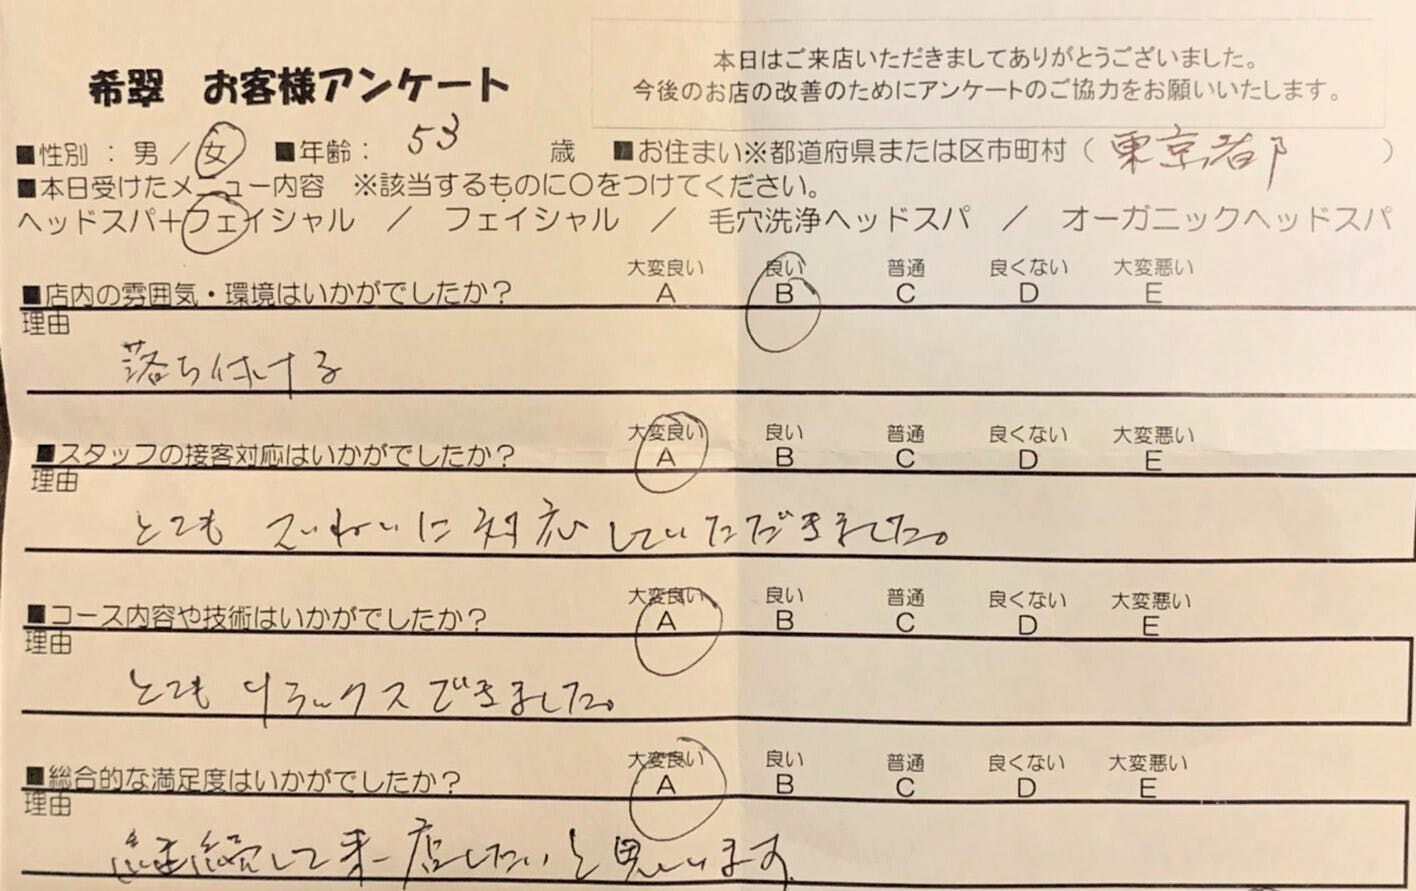 希翠 お客様アンケート
本日はご来店いただきましてありがとうございました。
今後のお店の改善のためにアンケートのご協力をお願いいたします。
■性別：男／女 ■年齢：53 歳 ■お住まい※都道府県または区市町村（東京都）
■本日受けたメニュー内容 ※該当するものに○をつけてください。
ヘッドスパ+フェイシャル ／ フェイシャル ／ 毛穴洗浄ヘッドスパ ／ オーガニックヘッドスパ
大変良い 良い 普通 良くない 大変悪い
■店内の雰囲気・環境はいかがでしたか？ A B C D E
理由
落ち付ける
大変良い 良い 普通 良くない 大変悪い
■スタッフの接客対応はいかがでしたか？ A B C D E
理由
とても ていねいに対応していただきました。
大変良い 良い 普通 良くない 大変悪い
■コース内容や技術はいかがでしたか？ A B C D E
理由
とても リラックスできました。
大変良い 良い 普通 良くない 大変悪い
■総合的な満足度はいかがでしたか？ A B C D E
理由
継続して来店したいと思います